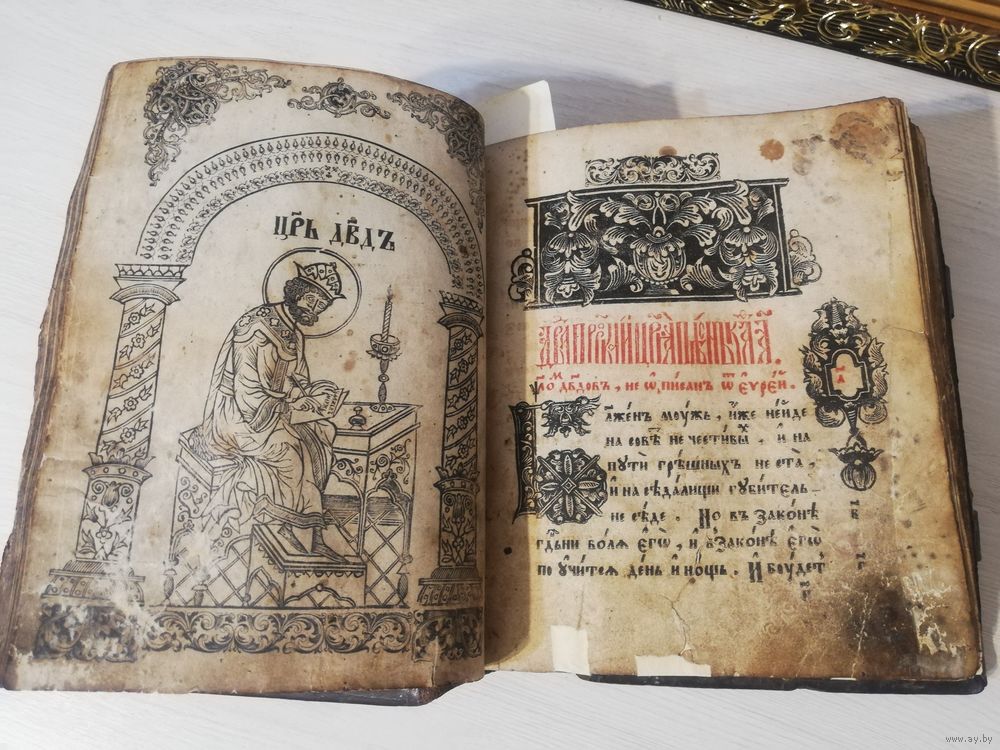 цр҃ь дв҃дъ
ѱ҃ло́м дв҃довъ, не ѡ҆пи́санъ ѿ є҆врє́й.
Бл҃же́нъ моужь, и҆́же не и҆́де
на совѣ́тъ нечести́выхъ, и҆ на
пути̑ грѣ́шныхъ не ста̀,
и҆ на сѣда́лищи губи́тель-
не сѣ́де. Но въ зако́нѣ
гдⷭ҇ни во́лѧ є҆гѡ̀, и҆ в̾зако́нѣ є҆гѡ̀
поꙋчи́тсѧ де́нь и҆ но́щь. И҆ бꙋ́детъ
www.ay.by